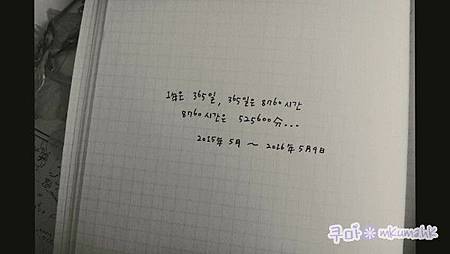 1年은 365일, 365일은 8760시간
8760시간은 525600分...
2015年 5月 ~ 2016年 5月9日
쿠마 mkumahk